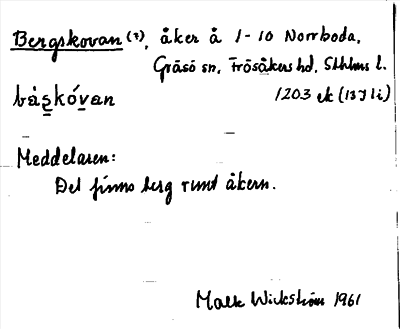 Bergskovan (?), åker å 1-10 Norrboda,
Gräsö sn, Frösåkers hd, Sthlms l.
båskóvan 1203 ek (13 I li)
Meddelaren:
Det finns berg runt åkern.
Wickström 1961